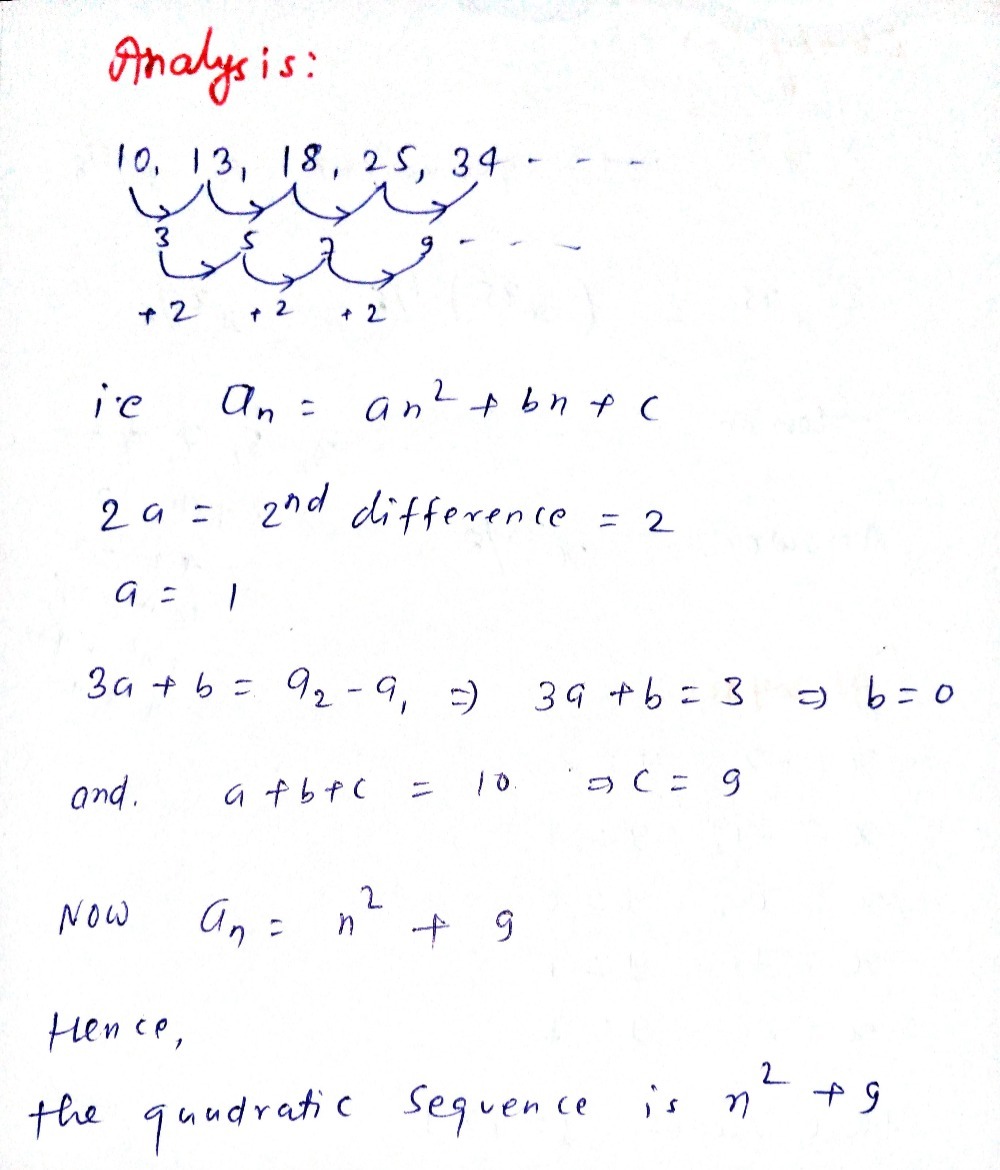 Analysis:
10, 13, 18, 25, 34 - - -
3 5 7 9 - - -
+2 +2 +2
i.e an = an² + bn + c
2a = 2nd difference = 2
a = 1
3a + b = a₂ - a₁ ⇒ 3a + b = 3 ⇒ b = 0
and. a + b + c = 10. ⇒ c = 9
NOW an = n² + 9
Hence,
the quadratic sequence is n² + 9